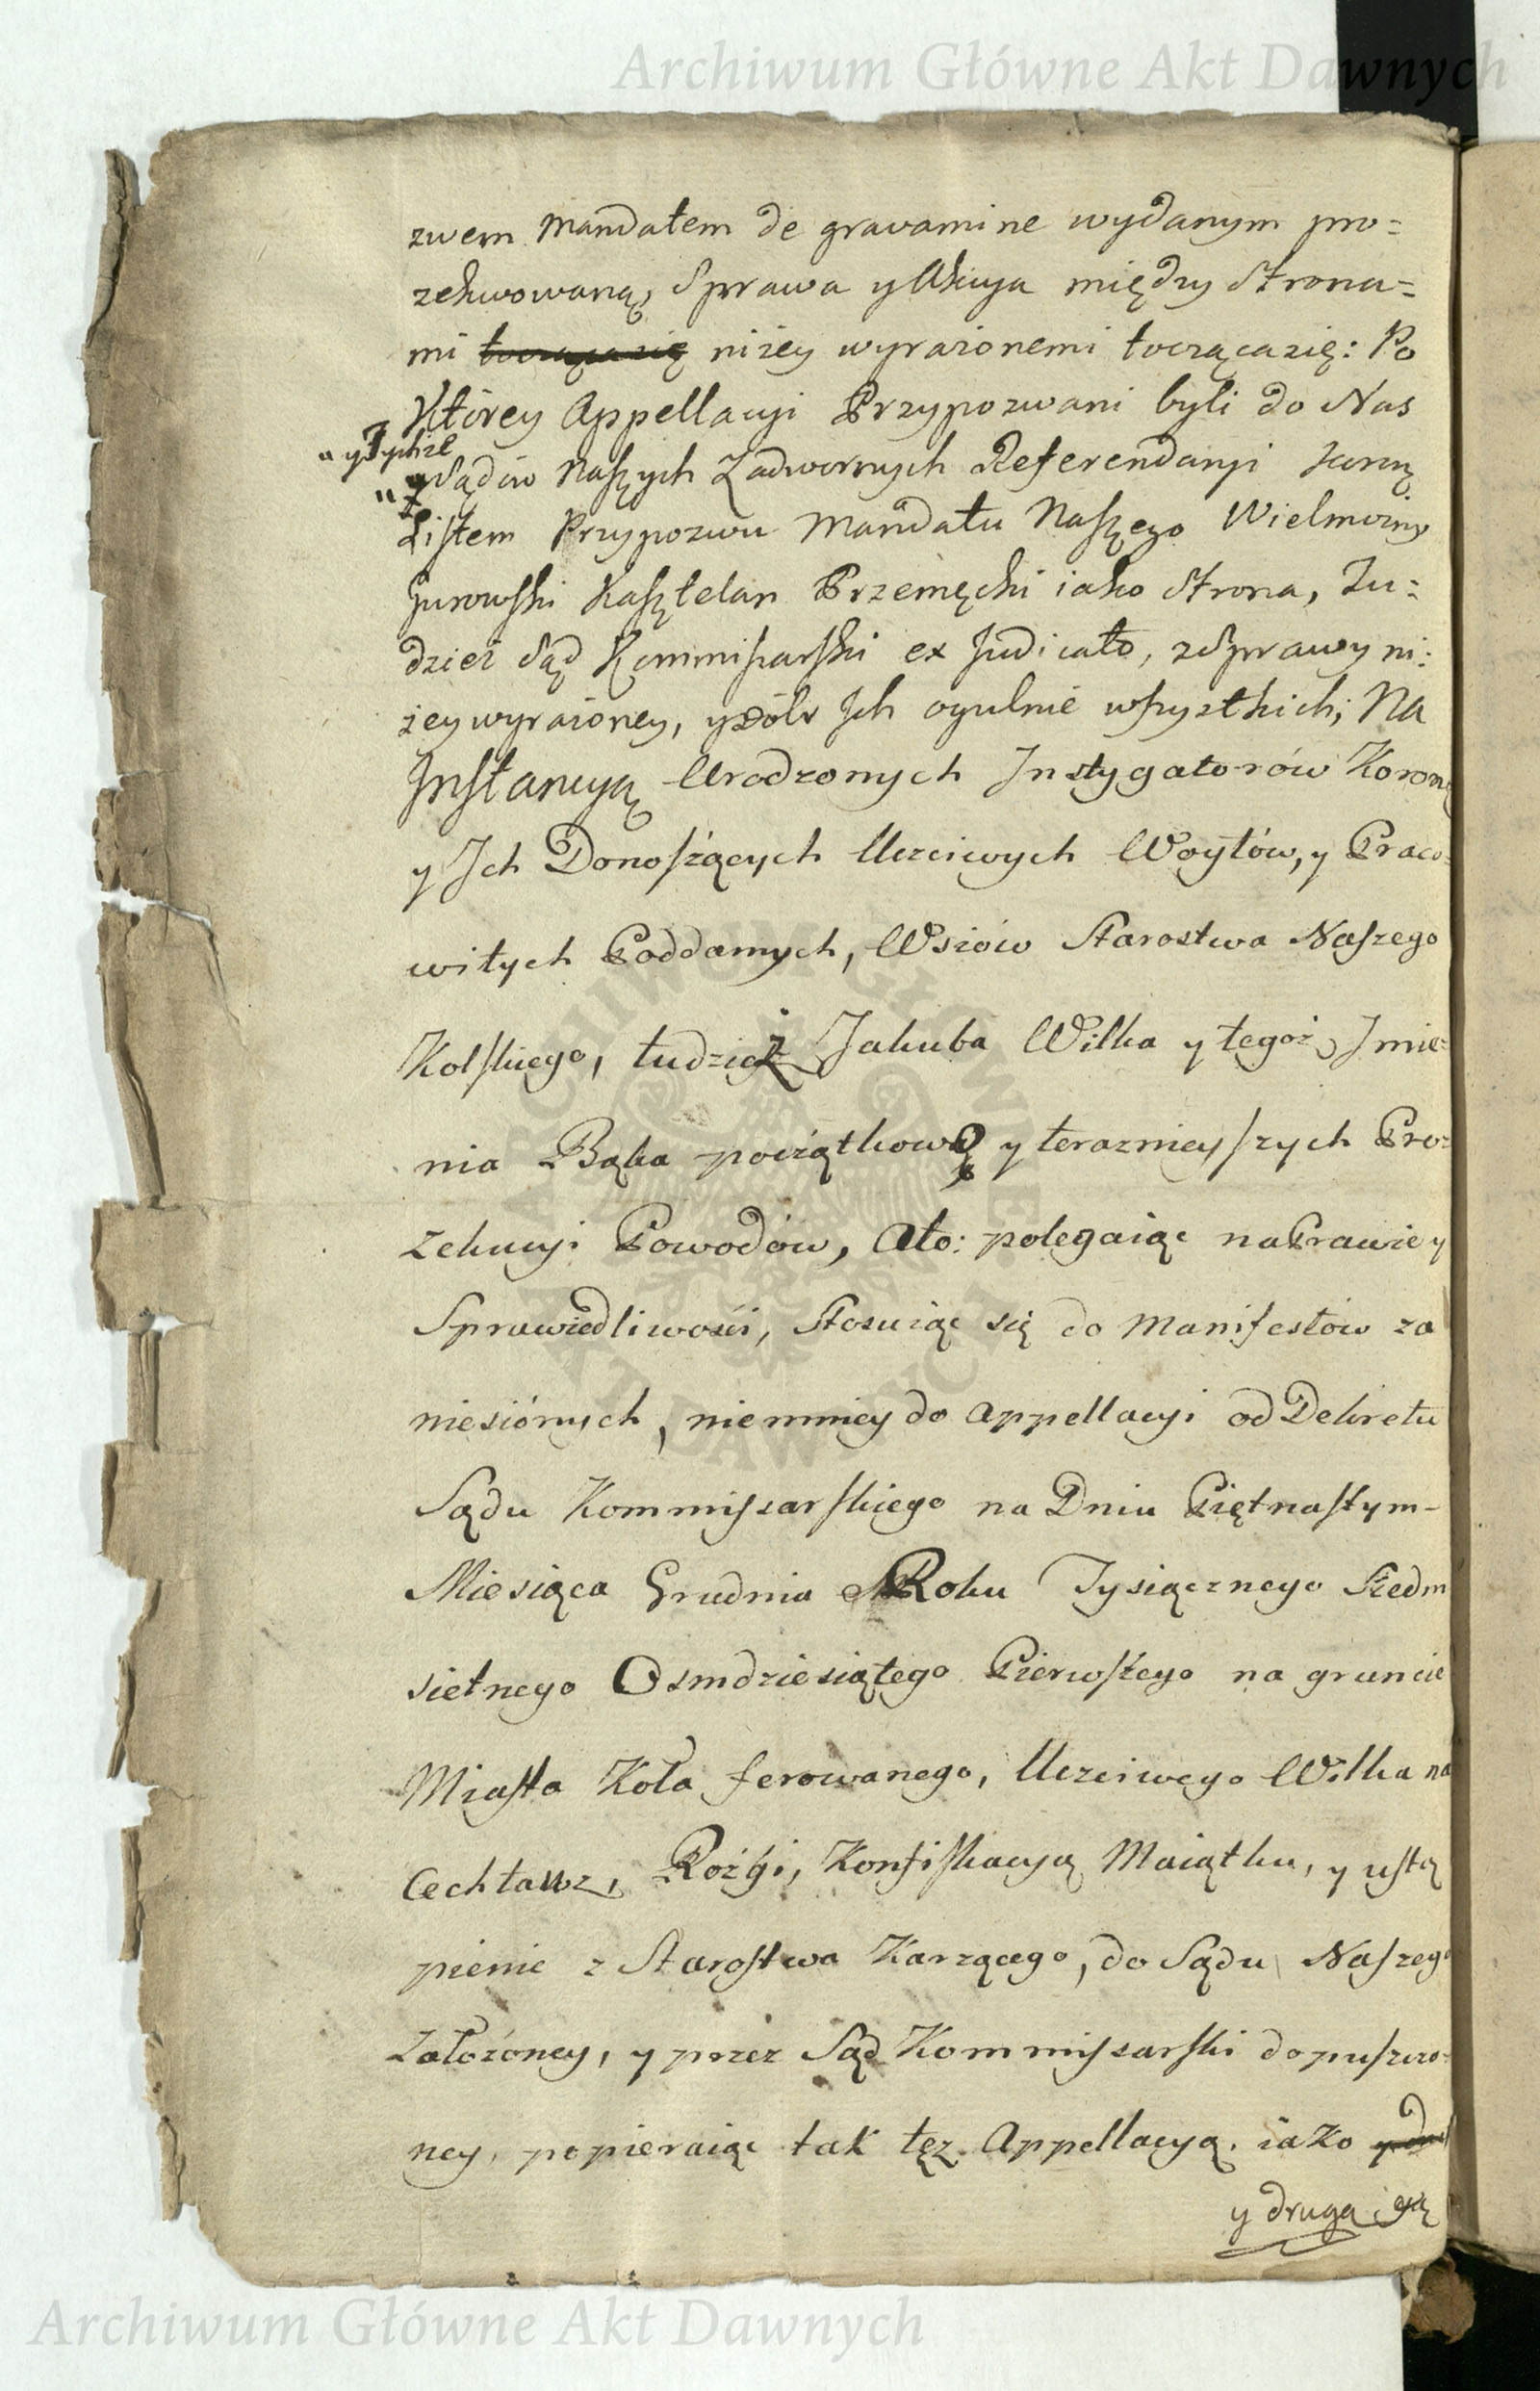 Archiwum Główne Akt Dawnych
zwem Mandatem de gravamine wydanym pro=
zekwowaną, Sprawa y Akcya między Strona=
mi tocząca się niżey wyrażonemi tocząca się: Po
Którey Appellacyi Przypozwani byli do Nas
y Tychże
y Sądów Naszych Zadwornych Referendaryi
Listem Przypozwu Mandatu Naszego Wielmożny
Gurowski Kasztelan Przemęcki iako Strona, Tu=
dzież Sąd Kommissarski ex Judicato, z Sprawy ni=
żey wyrażoney, y Ich ogulnie wszystkich; Na
Instancyą Urodzonych Instygatorów Koronn
y Ich Donoszących Uczciwych Woytów, y Praco=
witych Poddanych, Wsiów Starostwa Naszego
Kolskiego, tudzież Jakuba Wilka y tegoż Jmie=
nia Bąka początkowy y teraznieyszych Pro=
zekucyi Powodów, Ato: polegaiąc na Prawie y
Sprawiedliwości, Stosuiąc się do Manifestów za
niesiónych, niemniey do Appellacyi od Dekretu
Sądu Kommissarskiego na Dniu Piętnastym-
Miesiąca Grudnia Roku Tysiącznego Siedm
setnego Osmdziesiątego Pierwszego na gruncie
Miasta Koła ferowanego, Uczciwego Wilka na
Rózgi, Konfiskacyą Maiątku, y ustą
pienie z Starostwa Karzącego, do Sądu Naszego
Założóney, y przez Sąd Kommissarski dopuszczo=
ney, popieraiąc tak tęż Appellacyą, iako
y drugą
Archiwum Główne Akt Dawnych